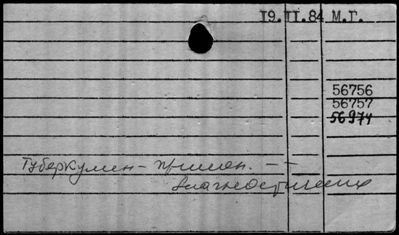 19.II.84 М.Г.
56756
56757
56974
Туберкулин – примен. – –
диагностических